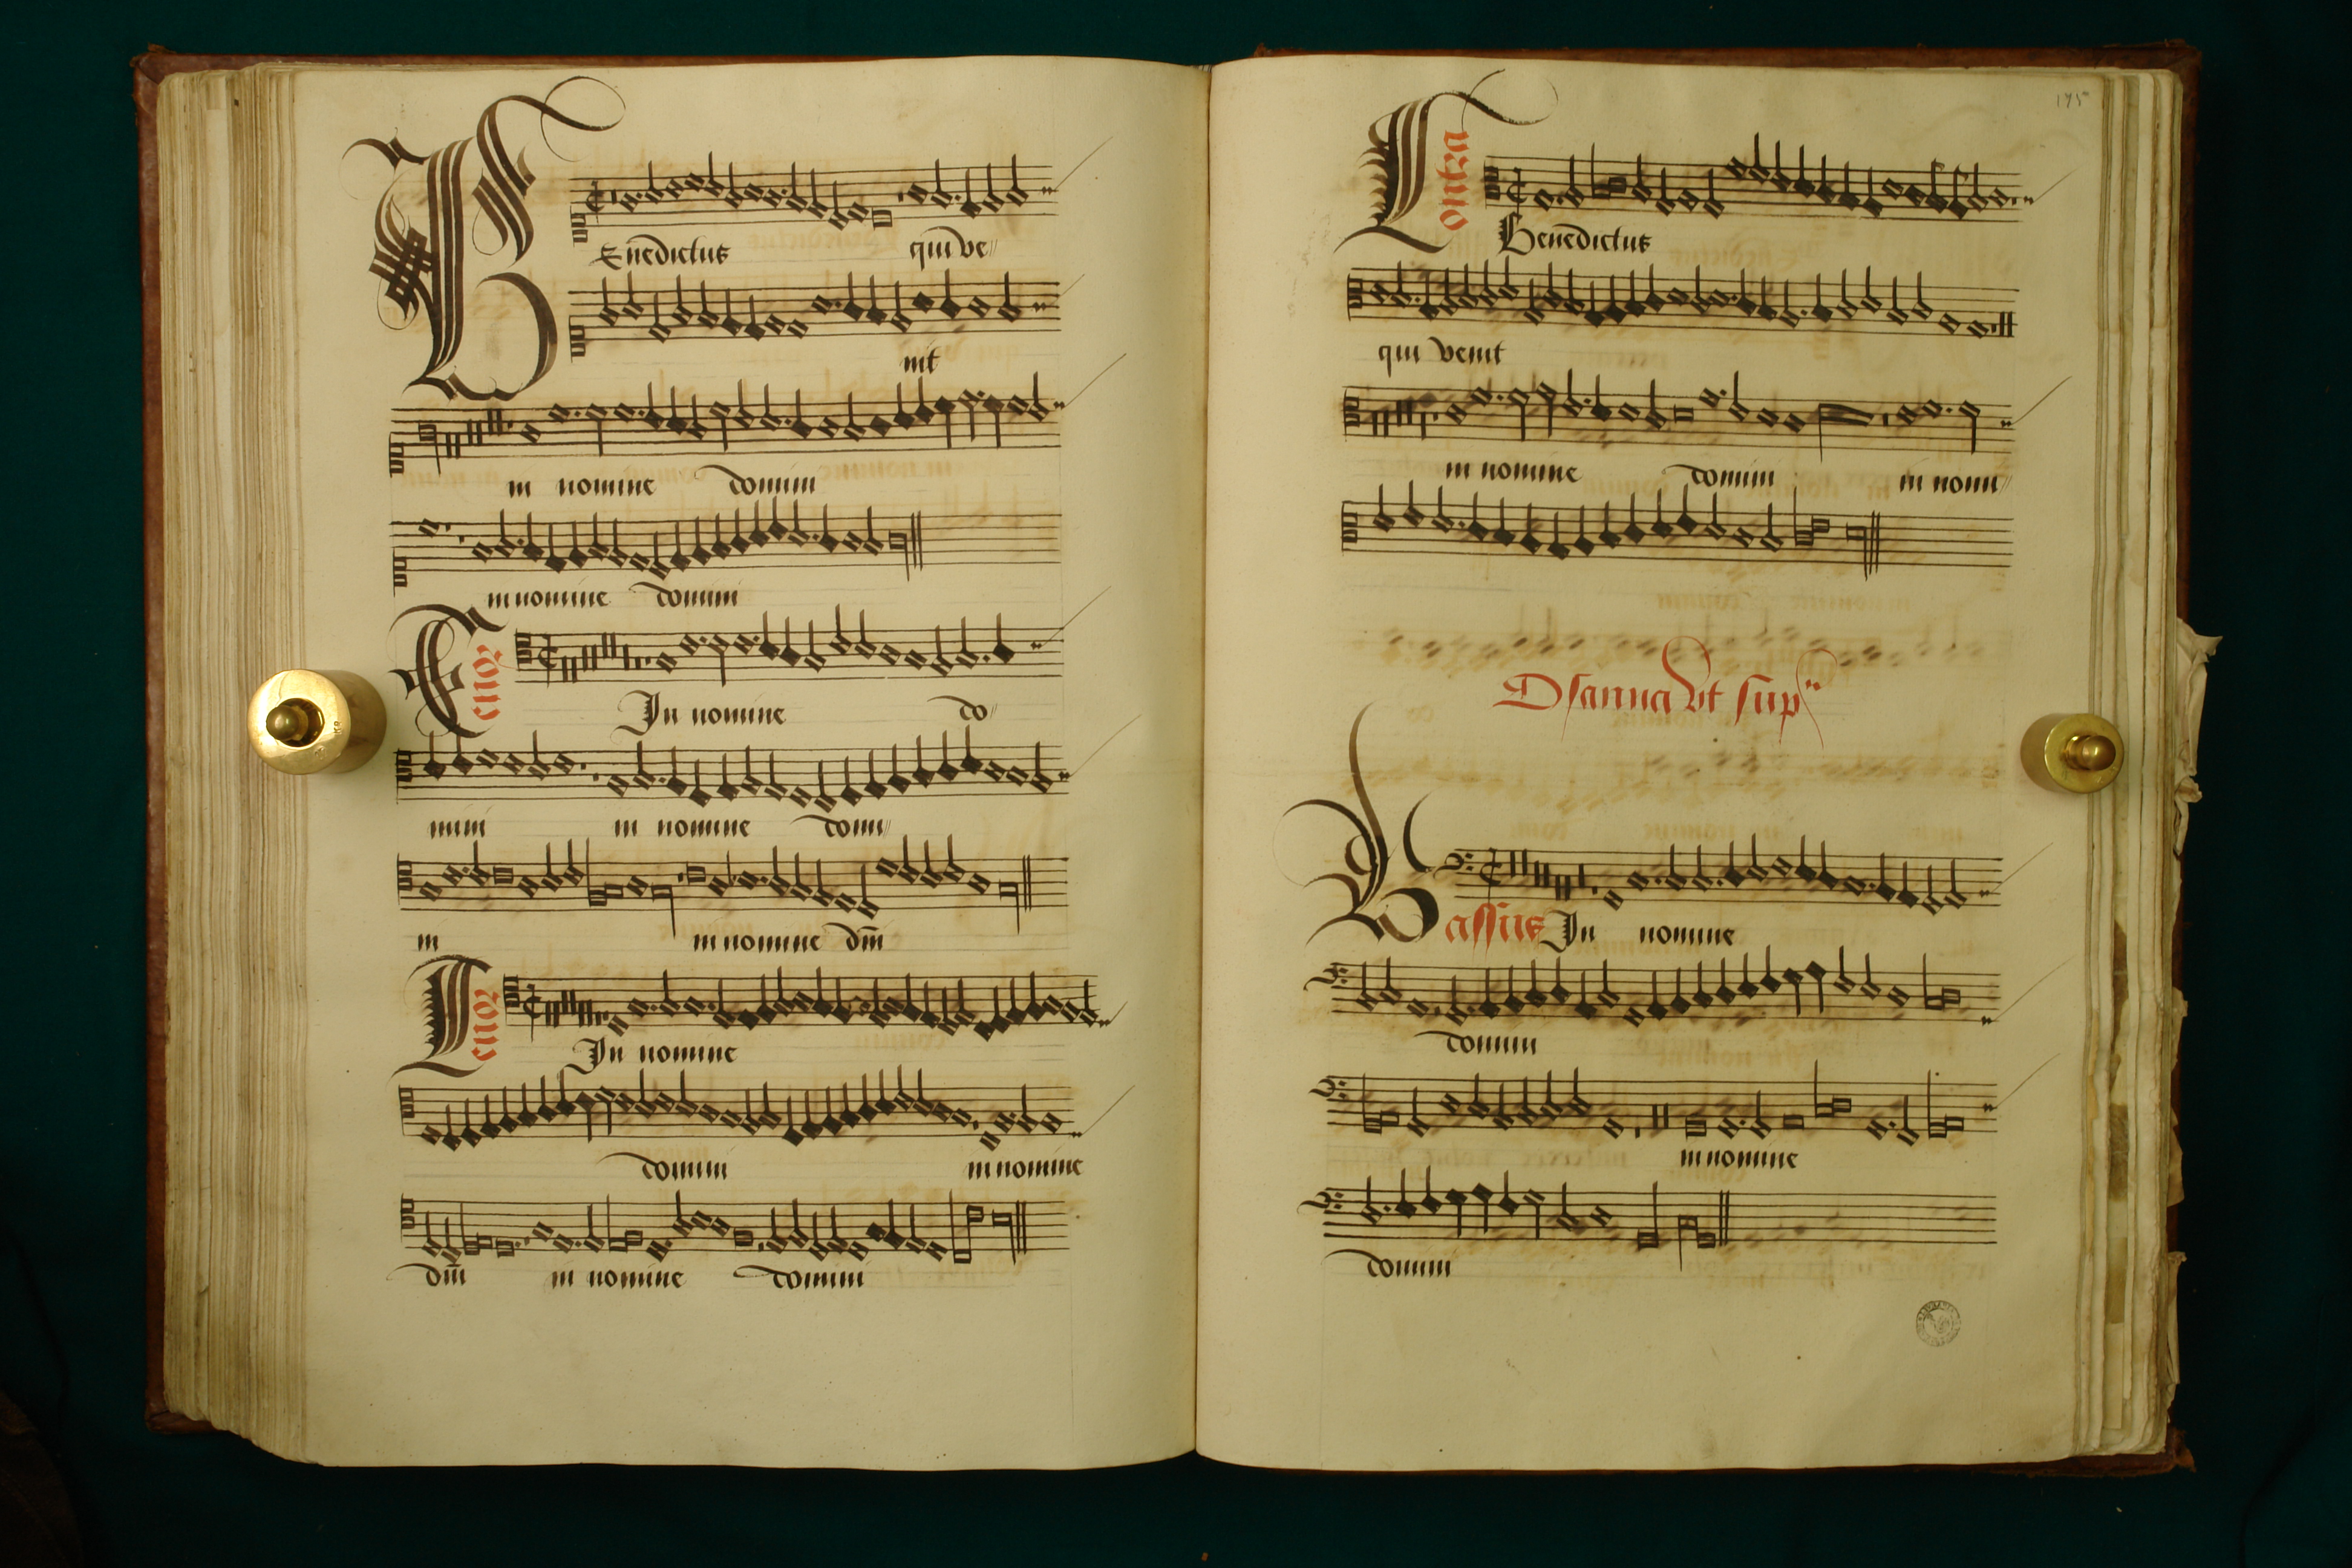 BEnedictus qui ve
nit
in nomine domini
in nomine domini
Tenor
In nomine do
mini in nomine domi
ni in nomine dm̄
Tenor
In nomine
domini in nomine
dm̄ in nomine domini
175
Contra
Benedictus
qui venit
in nomine domini in nomi
Osanna vt sup
Bassus In nomine
domini
in nomine
domini